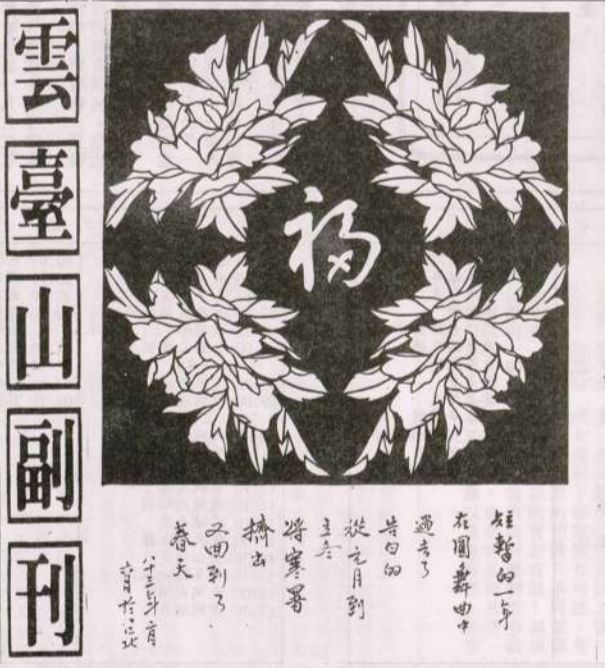 雲臺山副刊
福
短暫的一年
在圓舞曲中
過去了
告白的
從元月到
立冬
將寒暑
擠出
又回到了
春天
年二月
於江北